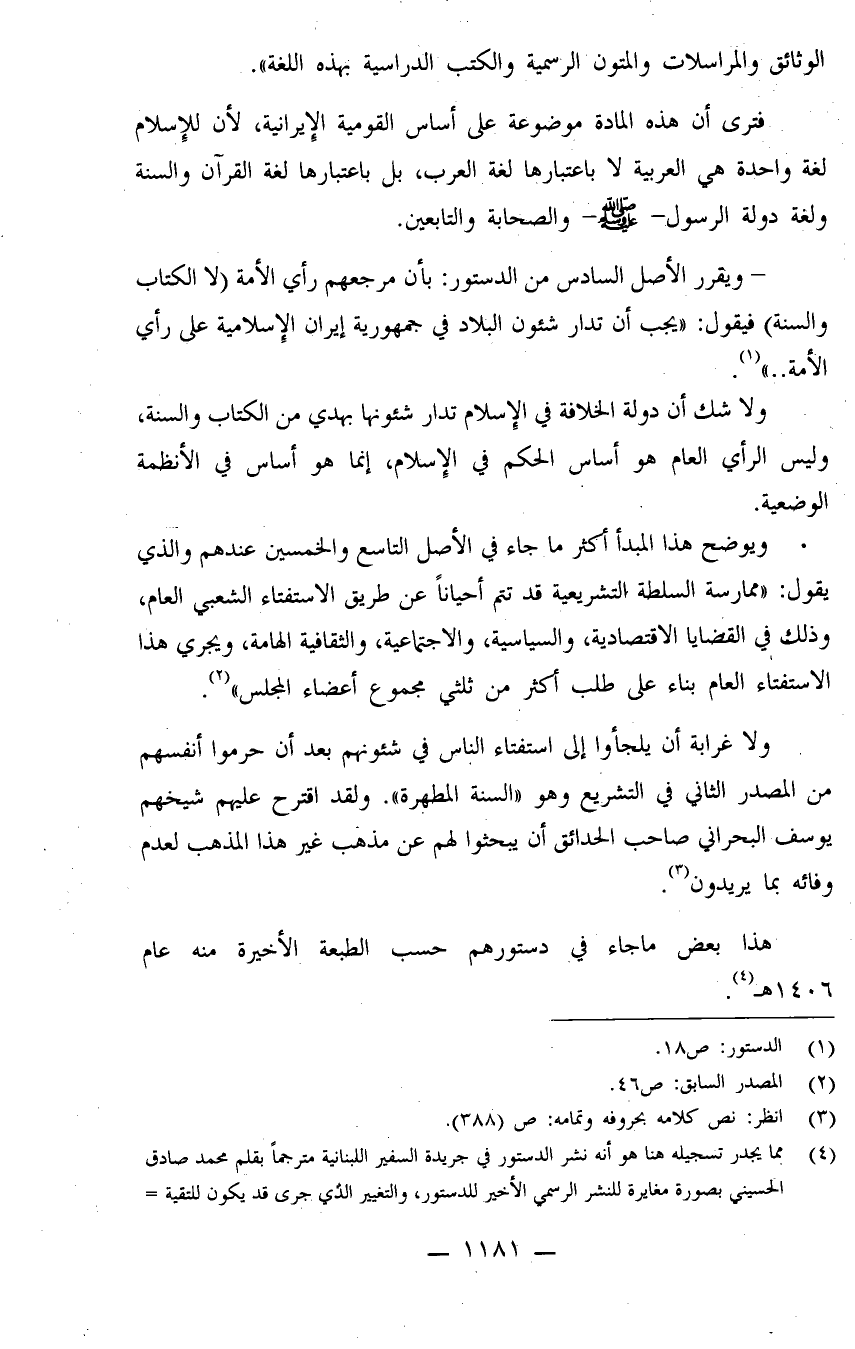 الوثائق والمراسلات والمتون الرسمية والكتب الدراسية بهذه اللغة».
فترى أن هذه المادة موضوعة على أساس القومية الإيرانية، لأن للإسلام
لغة واحدة هي العربية لا باعتبارها لغة العرب، بل باعتبارها لغة القرآن والسنة
ولغة دولة الرسول– ﷺ – والصحابة والتابعين.
– ويقرر الأصل السادس من الدستور: بأن مرجعهم رأي الأمة (لا الكتاب
والسنة) فيقول: «يجب أن تدار شئون البلاد في جمهورية إيران الإسلامية على رأي
الأمة..»(١).
ولا شك أن دولة الخلافة في الإسلام تدار شئونها بهدي من الكتاب والسنة،
وليس الرأي العام هو أساس الحكم في الإسلام، إنما هو أساس في الأنظمة
الوضعية.
• ويوضح هذا المبدأ أكثر ما جاء في الأصل التاسع والخمسين عندهم والذي
يقول: «ممارسة السلطة التشريعية قد تتم أحياناً عن طريق الاستفتاء الشعبي العام،
وذلك في القضايا الاقتصادية، والسياسية، والاجتماعية، والثقافية الهامة، ويجري هذا
الاستفتاء العام بناء على طلب أكثر من ثلثي مجموع أعضاء المجلس»(٢).
ولا غرابة أن يلجأوا إلى استفتاء الناس في شئونهم بعد أن حرموا أنفسهم
من المصدر الثاني في التشريع وهو «السنة المطهرة». ولقد اقترح عليهم شيخهم
يوسف البحراني صاحب الحدائق أن يبحثوا لهم عن مذهب غير هذا المذهب لعدم
وفائه بما يريدون(٣).
هذا بعض ماجاء في دستورهم حسب الطبعة الأخيرة منه عام
١٤٠٦هـ(٤).
(١) الدستور: ص١٨.
(٢) المصدر السابق: ص٤٦.
(٣) انظر: نص كلامه بحروفه وتمامه: ص (٣٨٨).
(٤) مما يجدر تسجيله هنا هو أنه نشر الدستور في جريدة السفير اللبنانية مترجماً بقلم محمد صادق
الحسيني بصورة مغايرة للنشر الرسمي الأخير للدستور، والتغيير الذي جرى قد يكون للتقية =
— ١١٨١ —